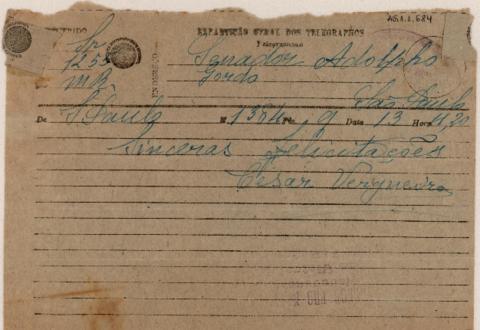 AG.1.1.684
REPARTIÇÃO GERAL DOS TELEGRAPHOS
Telegramma
Sp
1255
MB
ENDEREÇO
Senador Adolpho
Gordo
São Paulo
De S. Paulo N. 1384 Pls. 9 Data 13 Hora 11,20
Sinceras felicitações
Cesar Vergueiro